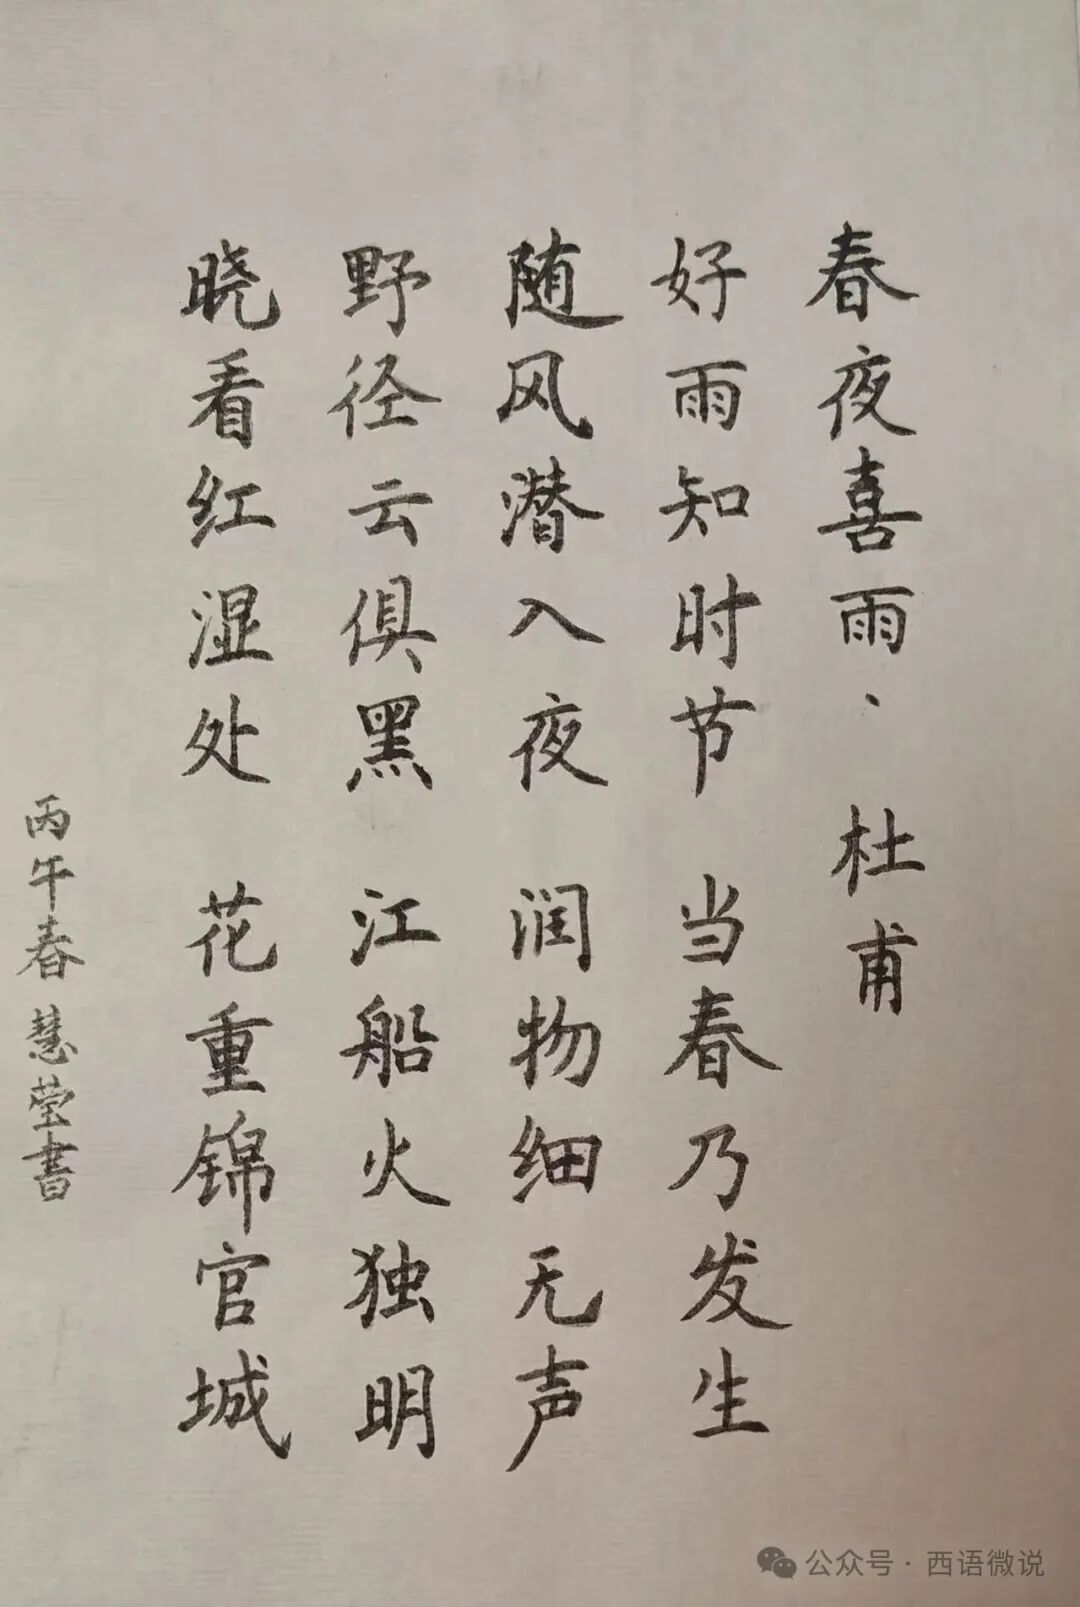 春夜喜雨、杜甫
好雨知时节 当春乃发生
随风潜入夜 润物细无声
野径云俱黑 江船火独明
晓看红湿处 花重锦官城
丙午春 慧莹書
公众号 · 西语微说